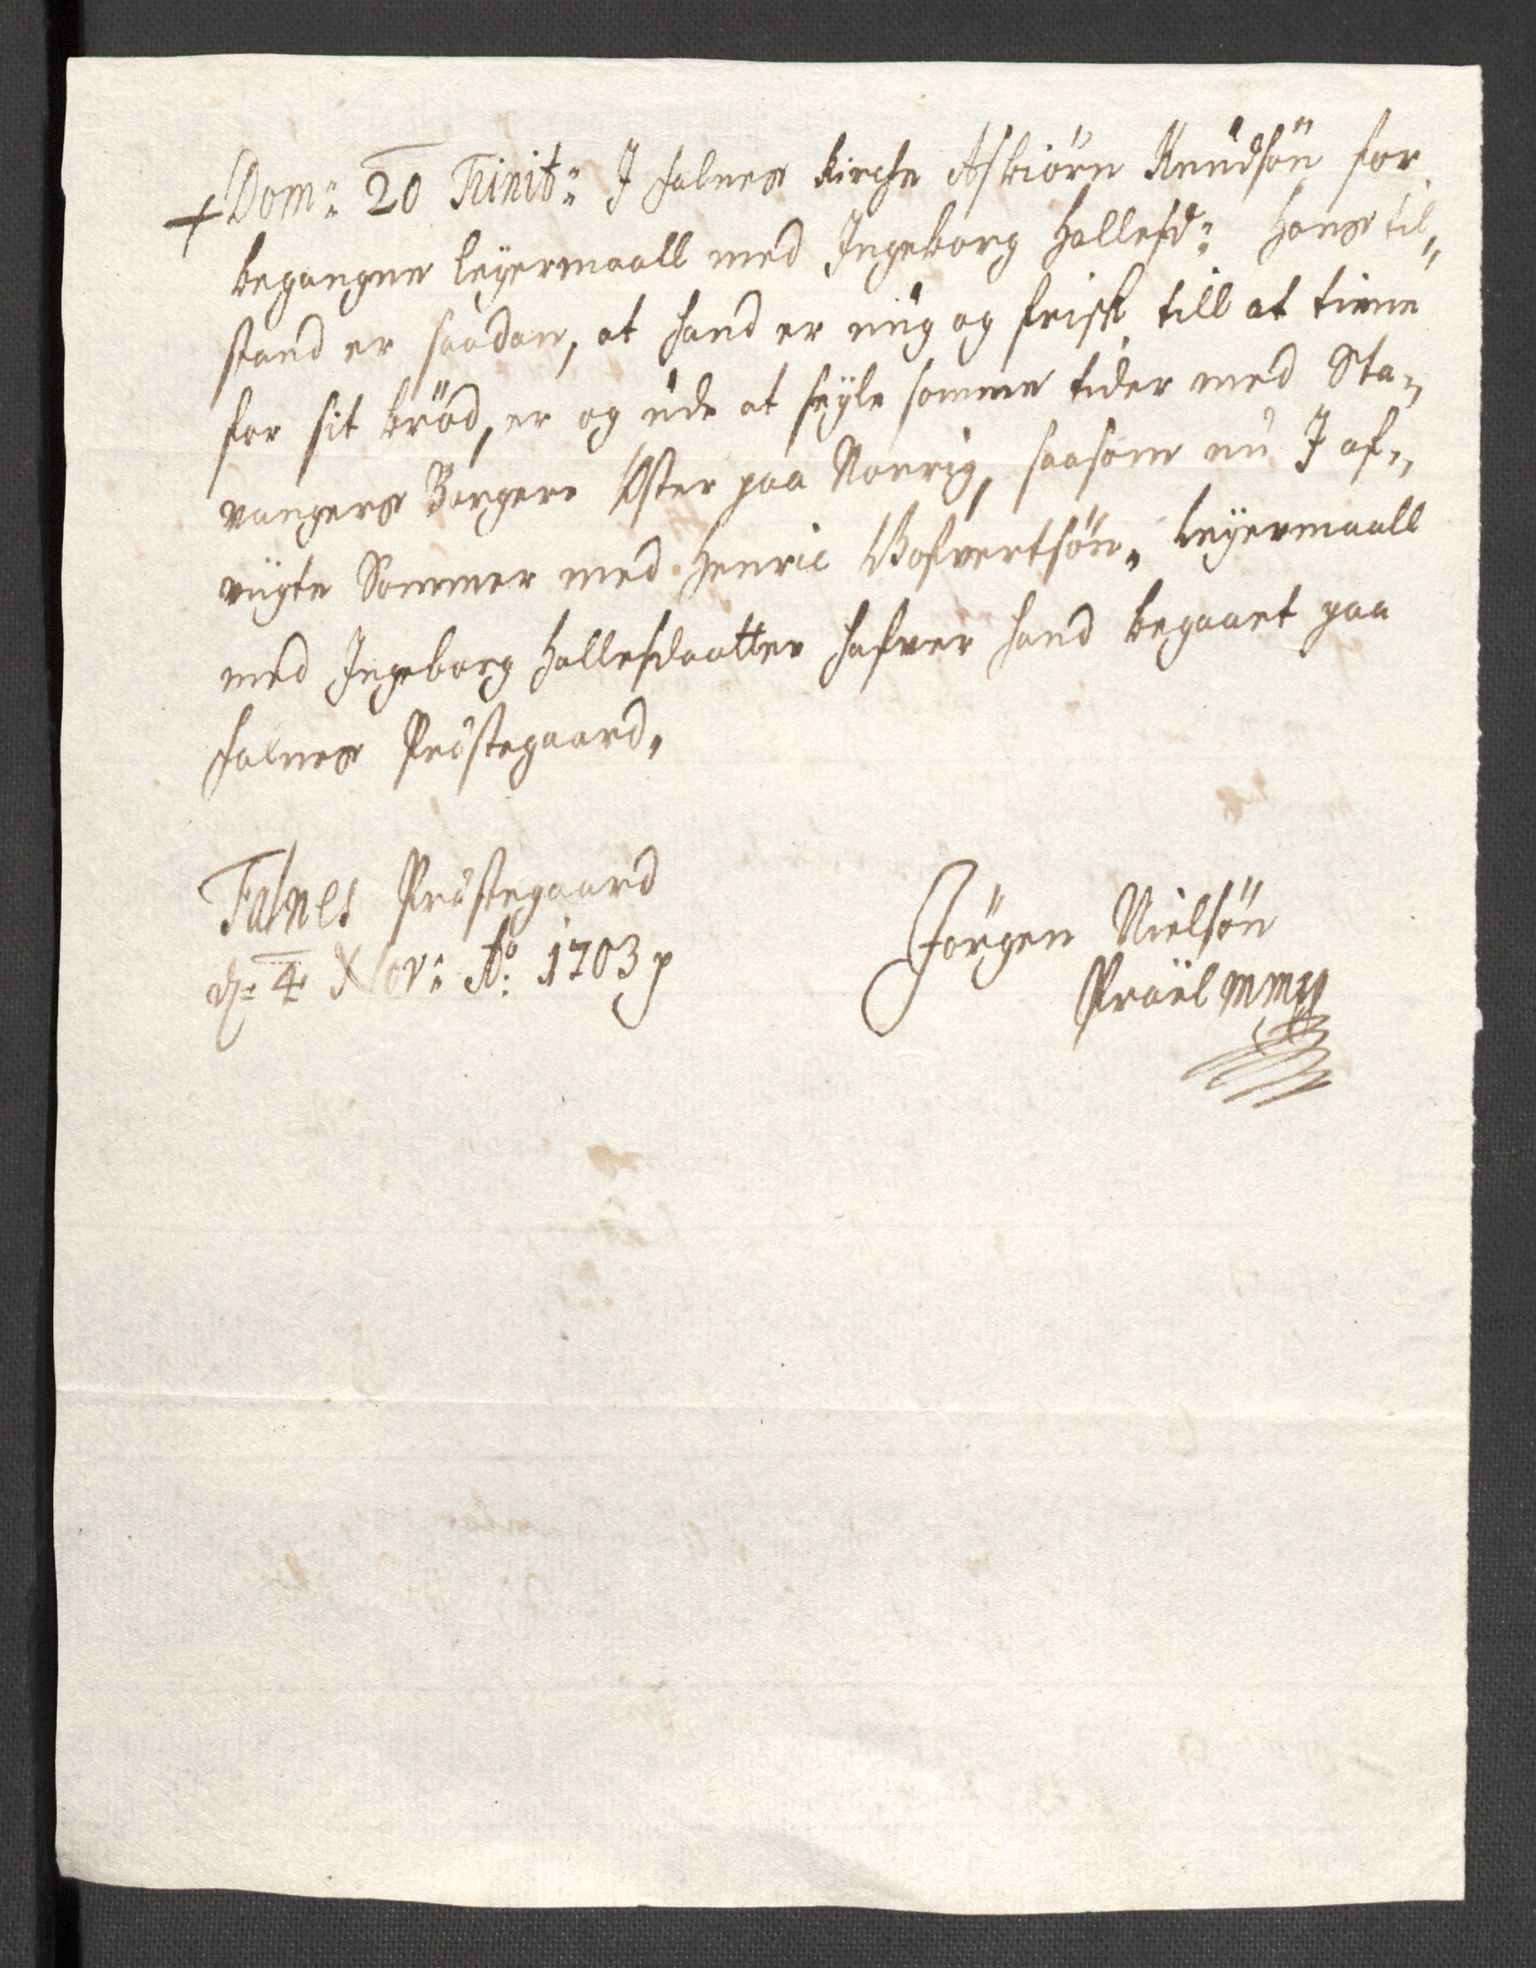 Dom: 20 Trinit: I Falnes Kirche Asbiörn Knudsön for
begangne leyermaall med Ingeborg Hallesd: Hans til„
stand er saadan, at hand er ung og frisk till at tiene
for sit bröd, er og ude at seyle somme tider med Sta„
vangers Borgere Öster paa Norrig, saasom nu I af„
vigte Sommer med Henric Gosvertsön. Leyermaall
med Ingeborg Hallesdaatter hafver hand begaaet paa
Falnes Præstegaard.
Falnes Præstegaard
d: 4 Nov: Ao: 1703 p
Jörgen Nielsön
Praël mmp